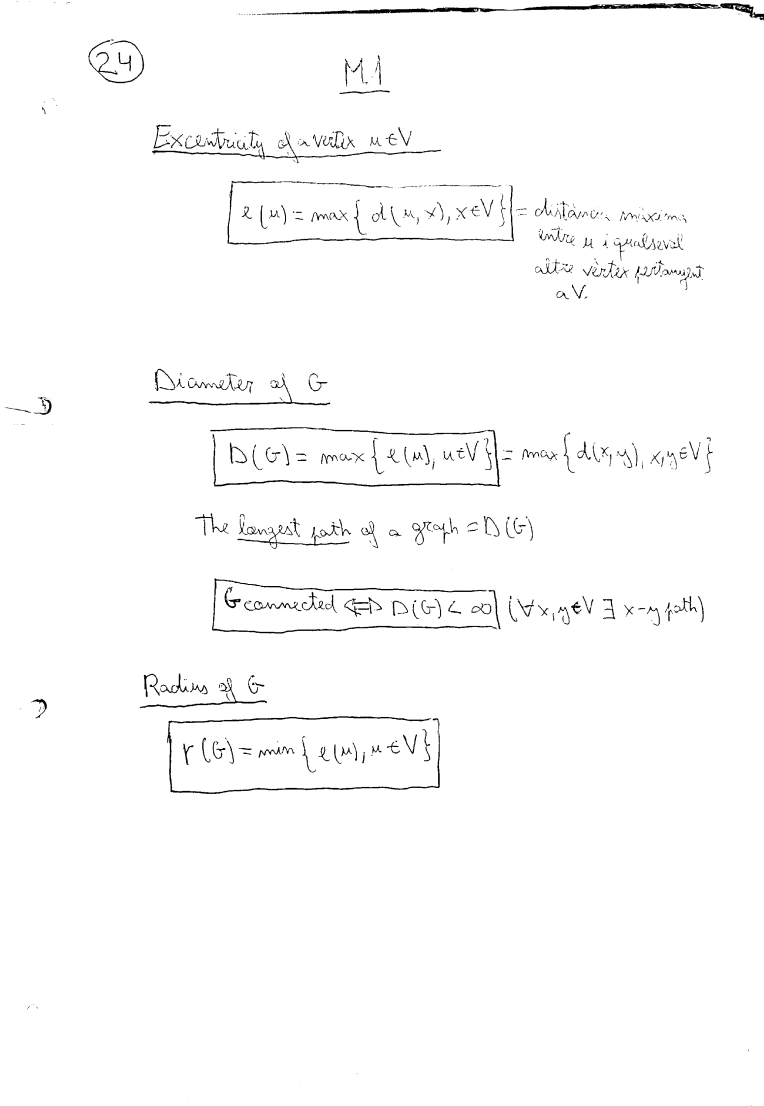 24
M.1
Excentricity of a vertex u∈V
e(u) = max{ d(u, x), x∈V} = distància màxima
entre u i qualsevol
altre vèrtex pertanyent
a V.
Diameter of G
D(G) = max{ e(u), u∈V} = max{ d(x,y), x,y∈V}
The longest path of a graph = D(G)
G connected ⇔ D(G) < ∞ (∀x,y∈V ∃ x-y path)
Radius of G
r(G) = min{ e(u), u∈V}